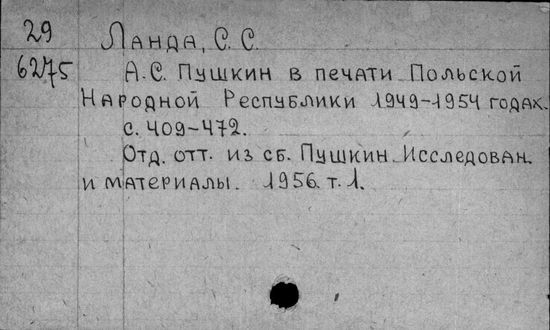 29 Ланда, С. С.
6275 А.С. Пушкин в печати Польской
Народной Республики 1949-1954 годах.
с. 409-472.
Отд. отт. из сб. Пушкин. Исследован.
и материалы. 1956. т. 1.